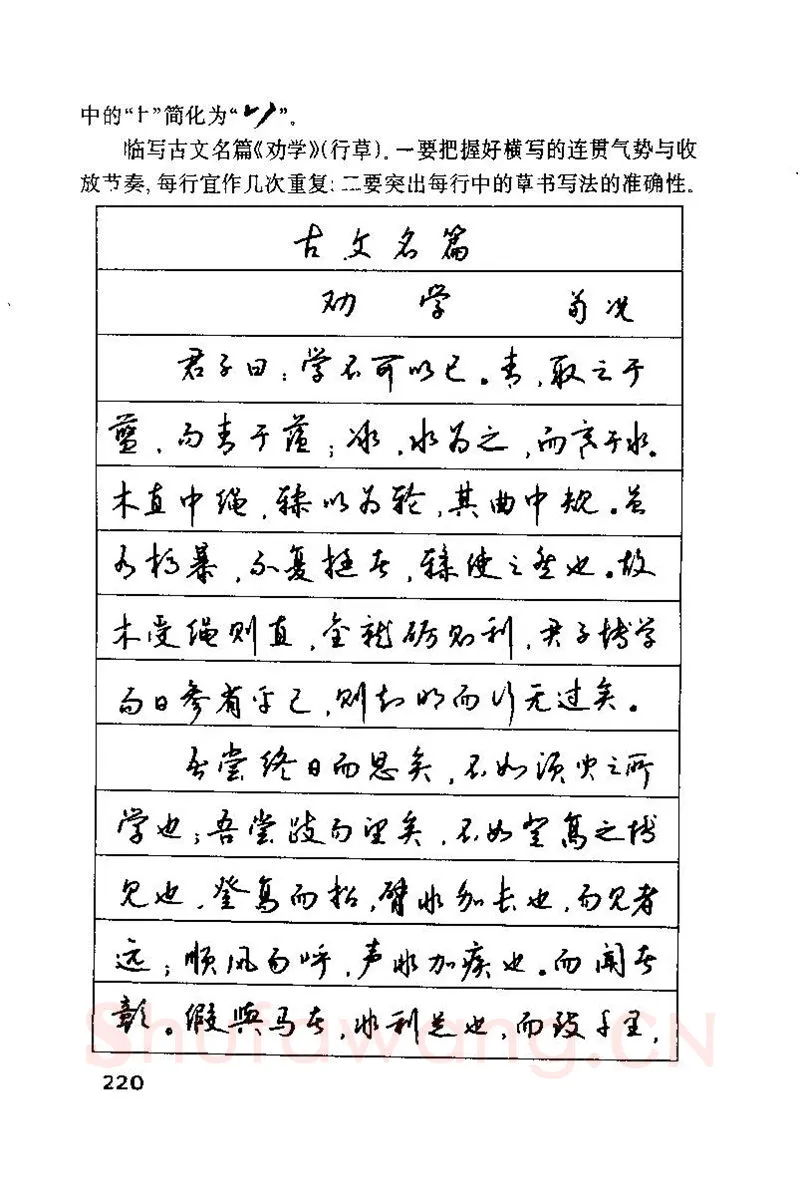 中的“忄”简化为“”。
临写古文名篇《劝学》(行草)。一要把握好横写的连贯气势与收
放节奏,每行宜作几次重复;二要突出每行中的草书写法的准确性。
古文名篇
劝学 荀况
君子曰:学不可以已。青,取之于
蓝,而青于蓝;冰,水为之,而寒于水。
木直中绳,輮以为轮,其曲中规。虽
有槁暴,不复挺者,輮使之然也。故
木受绳则直,金就砺则利,君子博学
而日参省乎己,则知明而行无过矣。
吾尝终日而思矣,不如须臾之所
学也;吾尝跂而望矣,不如登高之博
见也,登高而招,臂非加长也,而见者
远;顺风而呼,声非加疾也。而闻者
彰。假舆马者,非利足也,而致千里,
220
Shufawang.CN